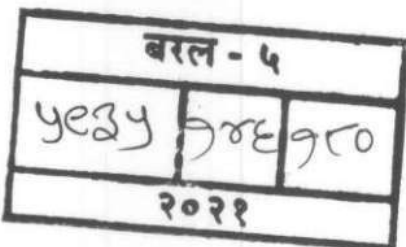 बरल - ५
५९३५ १४६ १८०
२०२१